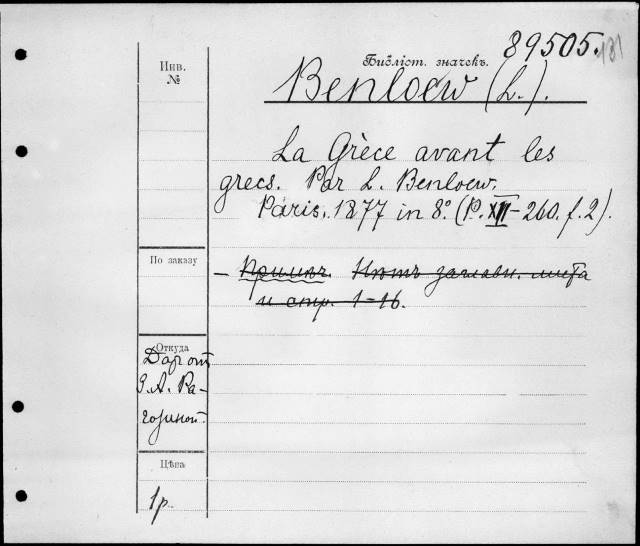 89505.
131
Инв.
№
Библіот. значекъ.
Benloew (L.).
La Grèce avant les
grecs. Par L. Benloew.
Paris. 1877 in 8º. (P. XII-260. f. 2).
По заказу
— Примѣч. Нѣтъ заглавн. листа
и стр. 1-16.
Откуда
Дар от
А. Ра-
гозиной
Цѣна
1 р.